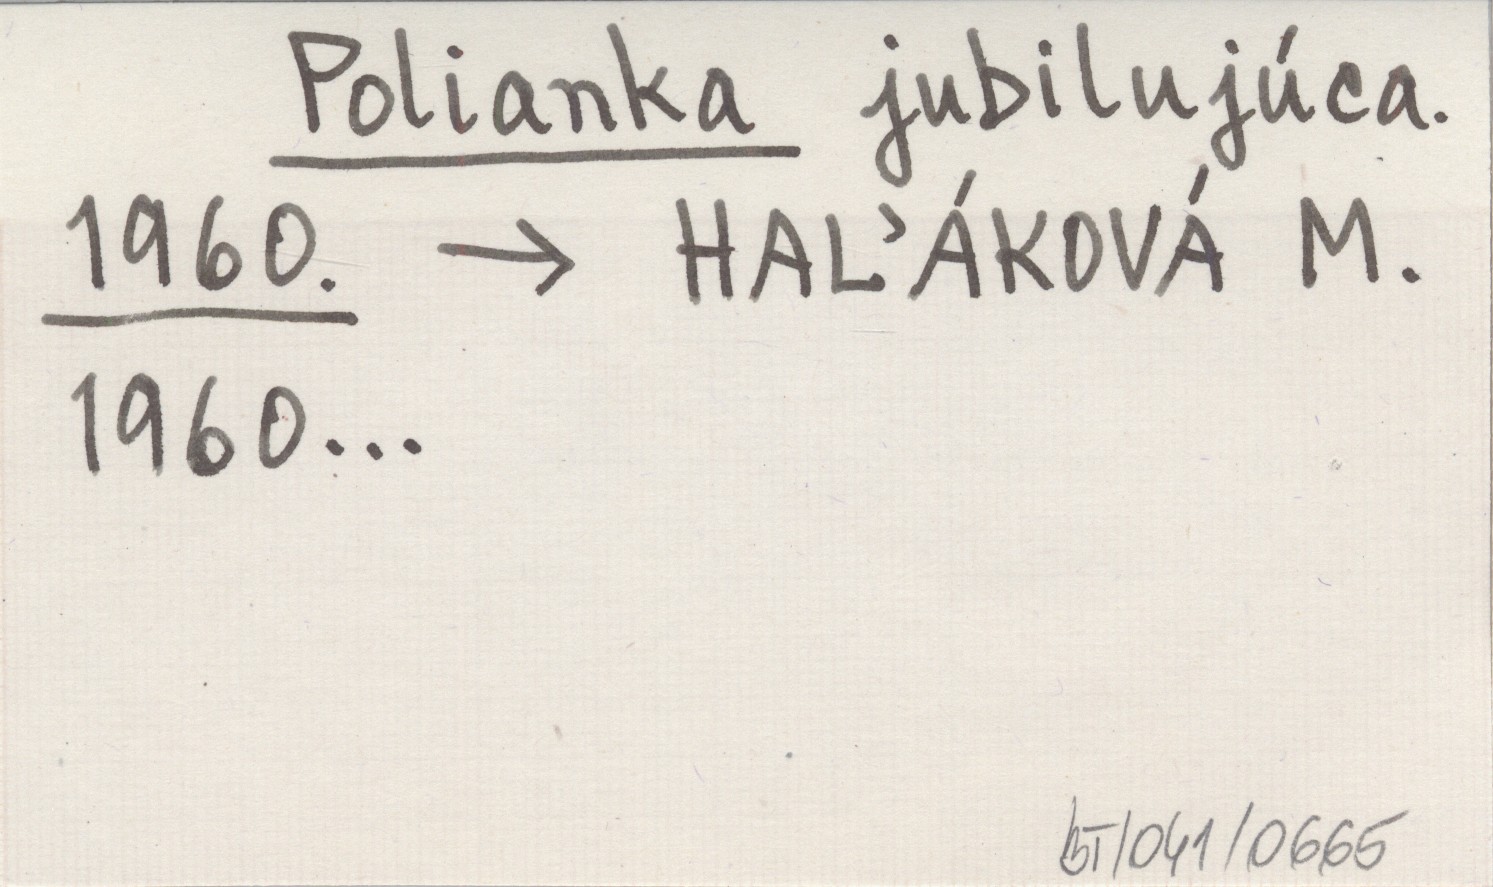 Polianka jubilujúca.
1960. → HAĽÁKOVÁ M.
1960...
BT/041/0665